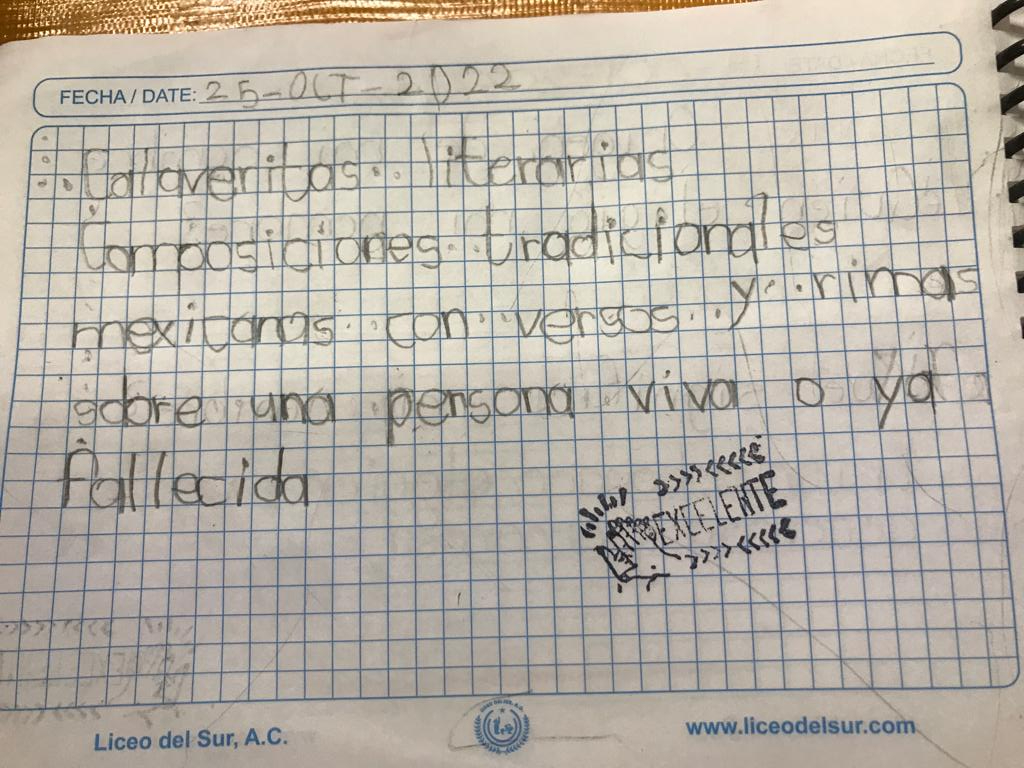 FECHA / DATE: 25-OCT-2022
Calaveritas literarias
Composiciones tradicionales
mexicanas con versos y rimas
sobre una persona viva o ya
fallecida
EXCELENTE
Liceo del Sur, A.C.
www.liceodelsur.com